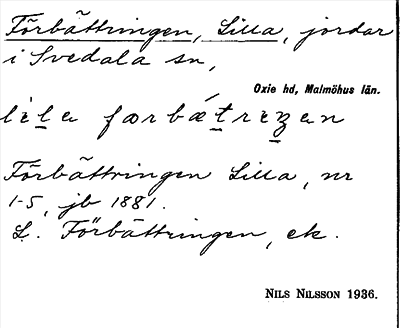 Förbättringen, Lilla, jordar
i Svedala sn,
Oxie hd, Malmöhus län.
Förbättringen Lilla, nr
1-5, jb 1881.
L. Förbättringen, ek.
NILS NILSSON 1936.